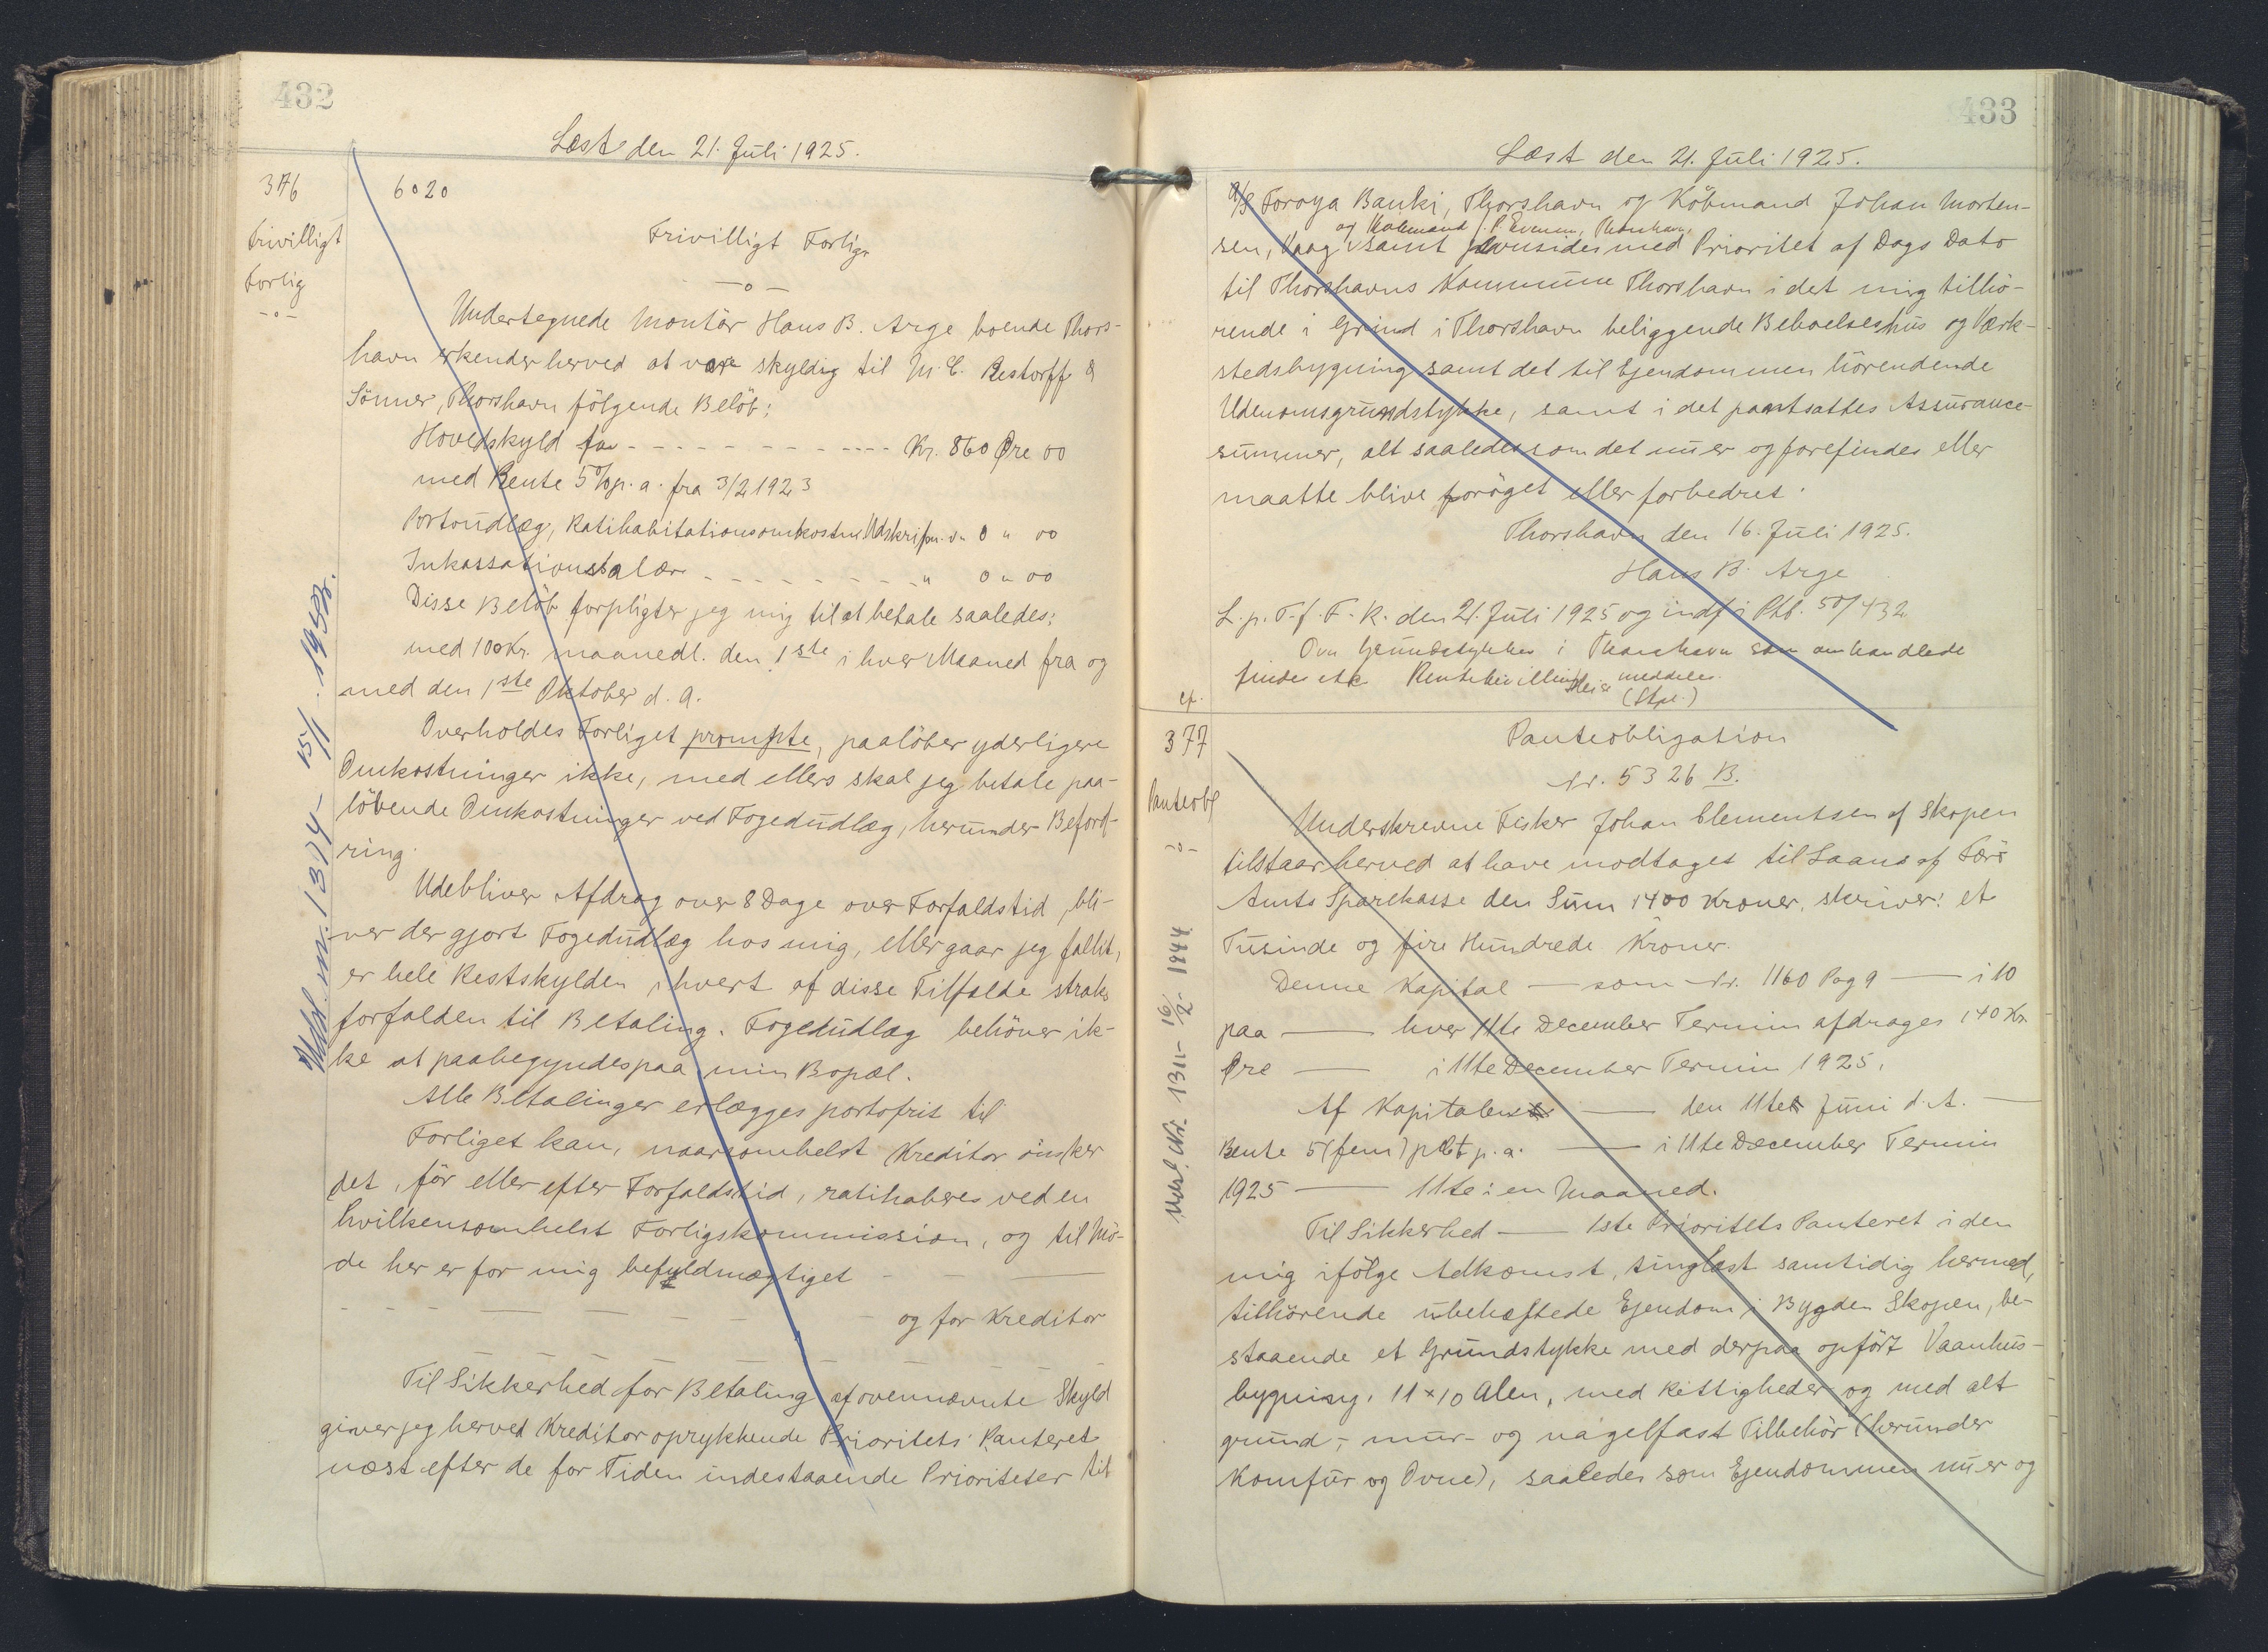 432
Læst den 21. Juli 1925.
376
Frivilligt
Forlig
-o-
6020
Frivilligt Forlig.
-o-
Undertegnede Montör Hans B. Arge boende Thors-
havn erkender herved at være skyldig til M. C. Restorff &
Sönner, Thorshavn fölgende Belöb:
Hovedskyld fa - - - - - - - - - - - - Kr. 860 Øre 00
med Rente 5 % p. a. fra 3/2 1923
Portoudlæg, Ratihabitationsomkostn. Udskripn. v. 0 " 00
Inkassationssalær - - - - - - - - - " 0 " 00
Disse Belöb forpligter jeg mig til at betale saaledes:
med 100 Kr. maanedl. den 1ste i hver Maaned fra og
med den 1ste Oktober d. a.
Overholdes Forliget prompte, paalöber yderligere
Omkostninger ikke, med ellers skal jeg betale paa-
löbende Omkostninger ved Fogedudlæg, herunder Beford-
ring.
Udebliver Afdrag over 8 Dage over Forfaldstid, bli-
ver der gjort Fogedudlæg hos mig, eller gaar jeg fallit,
er hele Restskylden i hvert af disse Tilfælde straks
forfalden til Betaling. Fogedudlæg behöver ik-
ke at paabegyndes paa min Bopæl.
Alle Betalinger erlægges portofrit til
Forliget kan, naarsomhelst Kreditor önsker
det, för eller efter Forfaldstid, ratihaberes ved en
hvilkensomhelst Forligskommission, og til Mö-
de her er for mig befuldmægtiget - - ——
- - - —— —— - - - og for Kreditor
Til Sikkerhed for Betaling af ovennævnte Skyld
giver jeg herved Kreditor oprykkende Prioritets Panteret
næst efter de for Tiden indestaaende Prioriteter til
Udsl. nr. 1374 - 15/1 - 1958.
433
Læst den 21. Juli 1925.
A/S Foroya Banki, Thorshavn og Köbmand Johan Morten-
og Købmand J. P. Evensen, Thorshavn,
sen, Vaag samt jævnsides med Prioritet af Dags Dato
til Thorshavns Kommune Thorshavn i det mig tilhö-
rende i Grind i Thorshavn beliggende Beboelseshus og Værk-
stedsbygning samt det til Ejendommen hörendende
Udenomsgrundstykke, samt i det pantsattes Assurance-
summer, alt saaledes som det nu er og forefindes eller
maatte blive foröget eller forbedret.
Thorshavn den 16. Juli 1925.
Hans B. Arge
L. p. T. f. F. K. den 21. Juli 1925 og indf i Ptb. 50/432
Ovn Grundstykker i Thorshavn som omhandlede
findes etc. Rentebevilling meddeles.
(Stpl.)
cf.
377
Panteobl
-o-
Panteobligation
Nr. 5326 B.
Underskrevne Fisker Johan Clementsen af Skopen
tilstaar herved at have modtaget til Laans af Færö
Amts Sparekasse den Sum 1400 Kroner, skriver: et
Tusinde og fire Hundrede Kroner.
Denne Kapital — som Nr. 1160 Pag 9 —— i 10
paa —— hver 11te December Termin afdrages 140 Kr.
Øre —— i 11te December Termin 1925.
Af Kapitalen —— den 11te Juni d. A. —
Rente 5 (fem) pCt p. a. —— i 11te December Termin
1925 —— 11te: en Maaned.
Til Sikkerhed —— 1ste Prioritets Panteret i den
mig ifölge Adkomst, tinglæst samtidig hermed,
tilhörende ubehæftede Ejendom i Bygden Skopen, be-
staaende et Grundstykke med derpaa opfört Vaanhus-
bygning, 11 x 10 Alen, med Rettigheder og med alt
grund-, mur- og nagelfast Tilbehör (herunder
Komfur og Ovne), saaledes som Ejendommen nu er og
Udsl. Nr. 1311 - 16/2 - 1944.